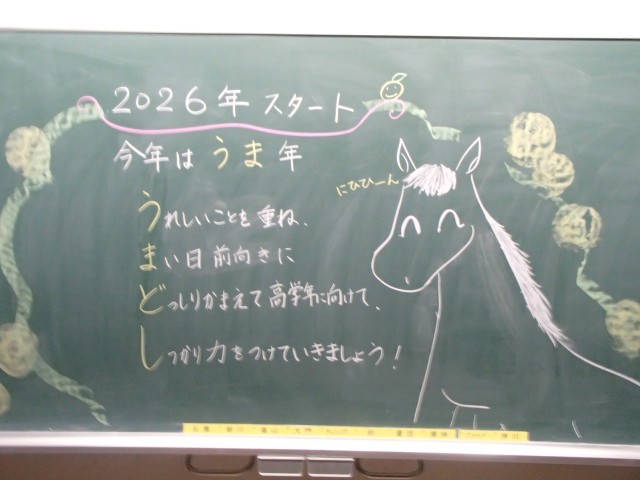 2026年 スタート
今年は うま年
にひひーん
うれしいことを重ね、
まい日 前向きに
どっしりかまえて 高学年に向けて、
しっかり力をつけていきましょう!